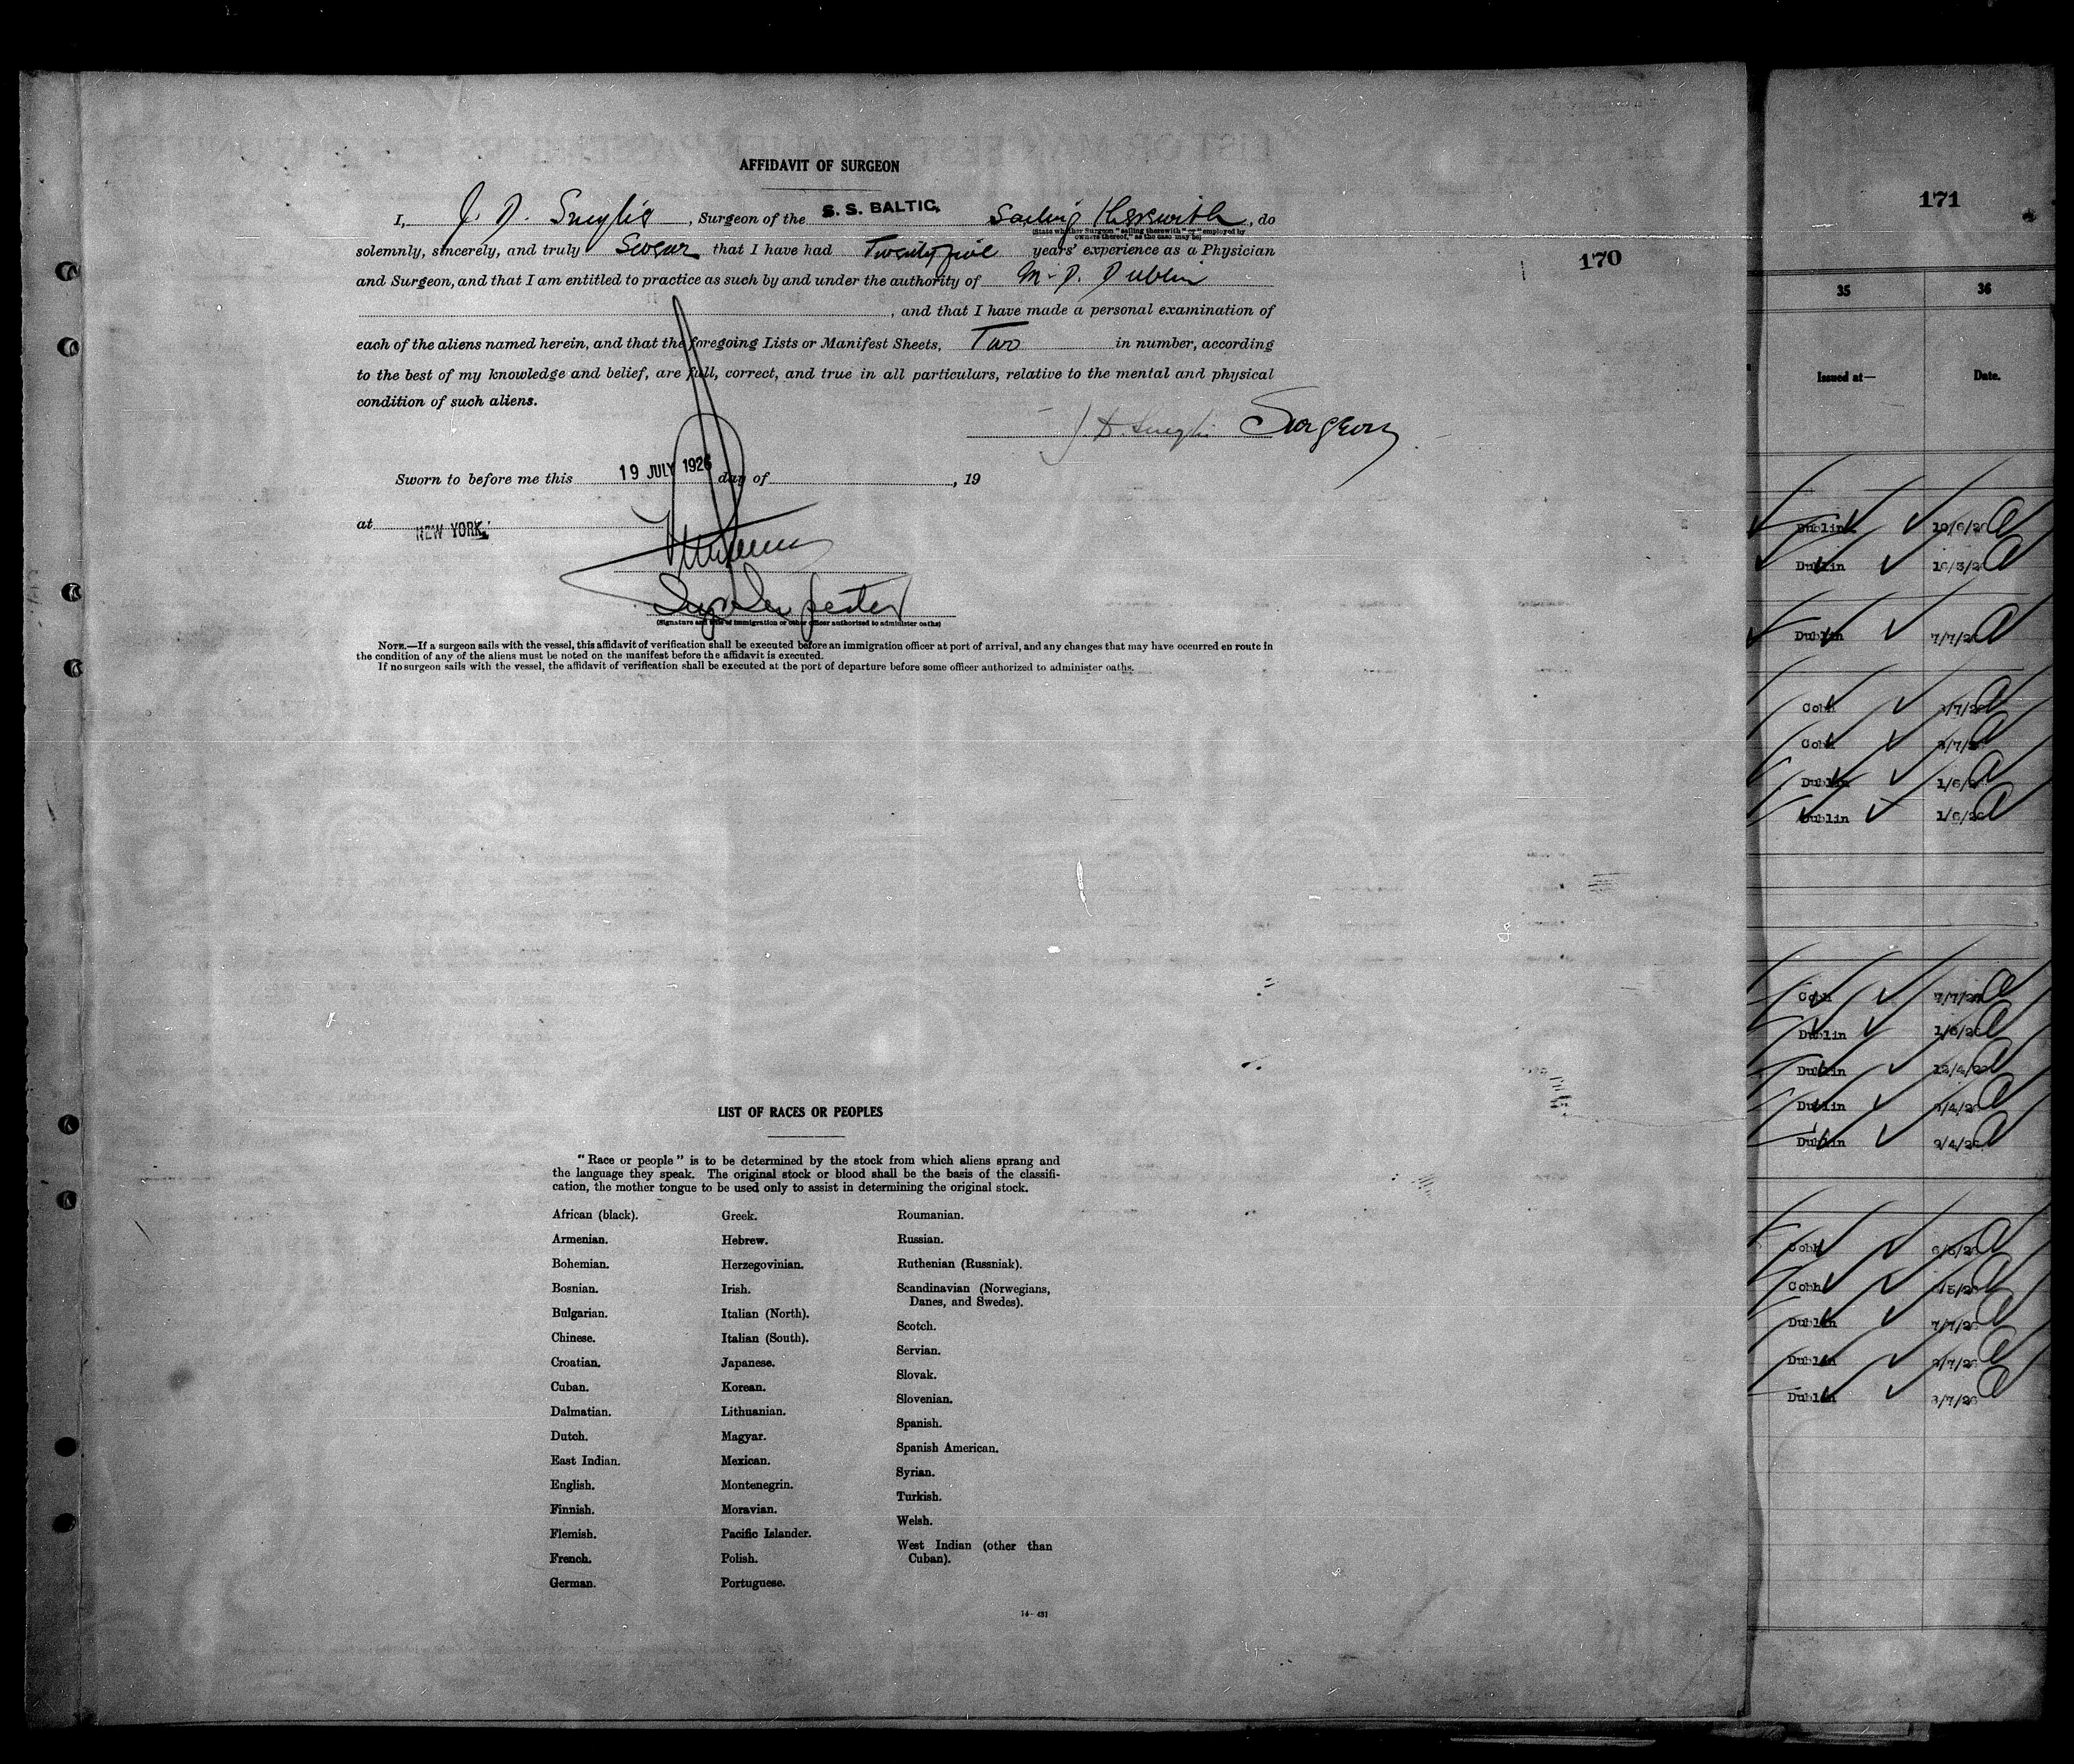 AFFIDAVIT OF SURGEON
I, J. D. , Surgeon of the S. S. BALTIC, Sailing Therewith, do
(State whether Surgeon "sailing therewith" or "employed by
owners thereof," as the case may be)
solemnly, sincerely, and truly Swear that I have had Twenty five years' experience as a Physician
and Surgeon, and that I am entitled to practice as such by and under the authority of M. D. Dublin
, and that I have made a personal examination of
each of the aliens named herein, and that the foregoing Lists or Manifest Sheets, Two in number, according
to the best of my knowledge and belief, are full, correct, and true in all particulars, relative to the mental and physical
condition of such aliens.
Surgeon
Sworn to before me this 19 JULY 1926 day of , 19
at NEW YORK.
(Signature and title of immigration or other officer authorized to administer oaths)
NOTE.—If a surgeon sails with the vessel, this affidavit of verification shall be executed before an immigration officer at port of arrival, and any changes that may have occurred en route in
the condition of any of the aliens must be noted on the manifest before the affidavit is executed.
If no surgeon sails with the vessel, the affidavit of verification shall be executed at the port of departure before some officer authorized to administer oaths.
LIST OF RACES OR PEOPLES
"Race or people" is to be determined by the stock from which aliens sprang and
the language they speak. The original stock or blood shall be the basis of the classifi-
cation, the mother tongue to be used only to assist in determining the original stock.
African (black).
Armenian.
Bohemian.
Bosnian.
Bulgarian.
Chinese.
Croatian.
Cuban.
Dalmatian.
Dutch.
East Indian.
English.
Finnish.
Flemish.
French.
German.
Greek.
Hebrew.
Herzegovinian.
Irish.
Italian (North).
Italian (South).
Japanese.
Korean.
Lithuanian.
Magyar.
Mexican.
Montenegrin.
Moravian.
Pacific Islander.
Polish.
Portuguese.
Roumanian.
Russian.
Ruthenian (Russniak).
Scandinavian (Norwegians,
Danes, and Swedes).
Scotch.
Servian.
Slovak.
Slovenian.
Spanish.
Spanish American.
Syrian.
Turkish.
Welsh.
West Indian (other than
Cuban).
14-431
170
171
35 36
Issued at— Date.
Dublin
Dublin
Dublin
Cobh
Cobh
Dublin
Dublin
Cobh
Dublin
Dublin
Dublin
Dublin
Cobh
Cobh
Dublin
Dublin
Dublin